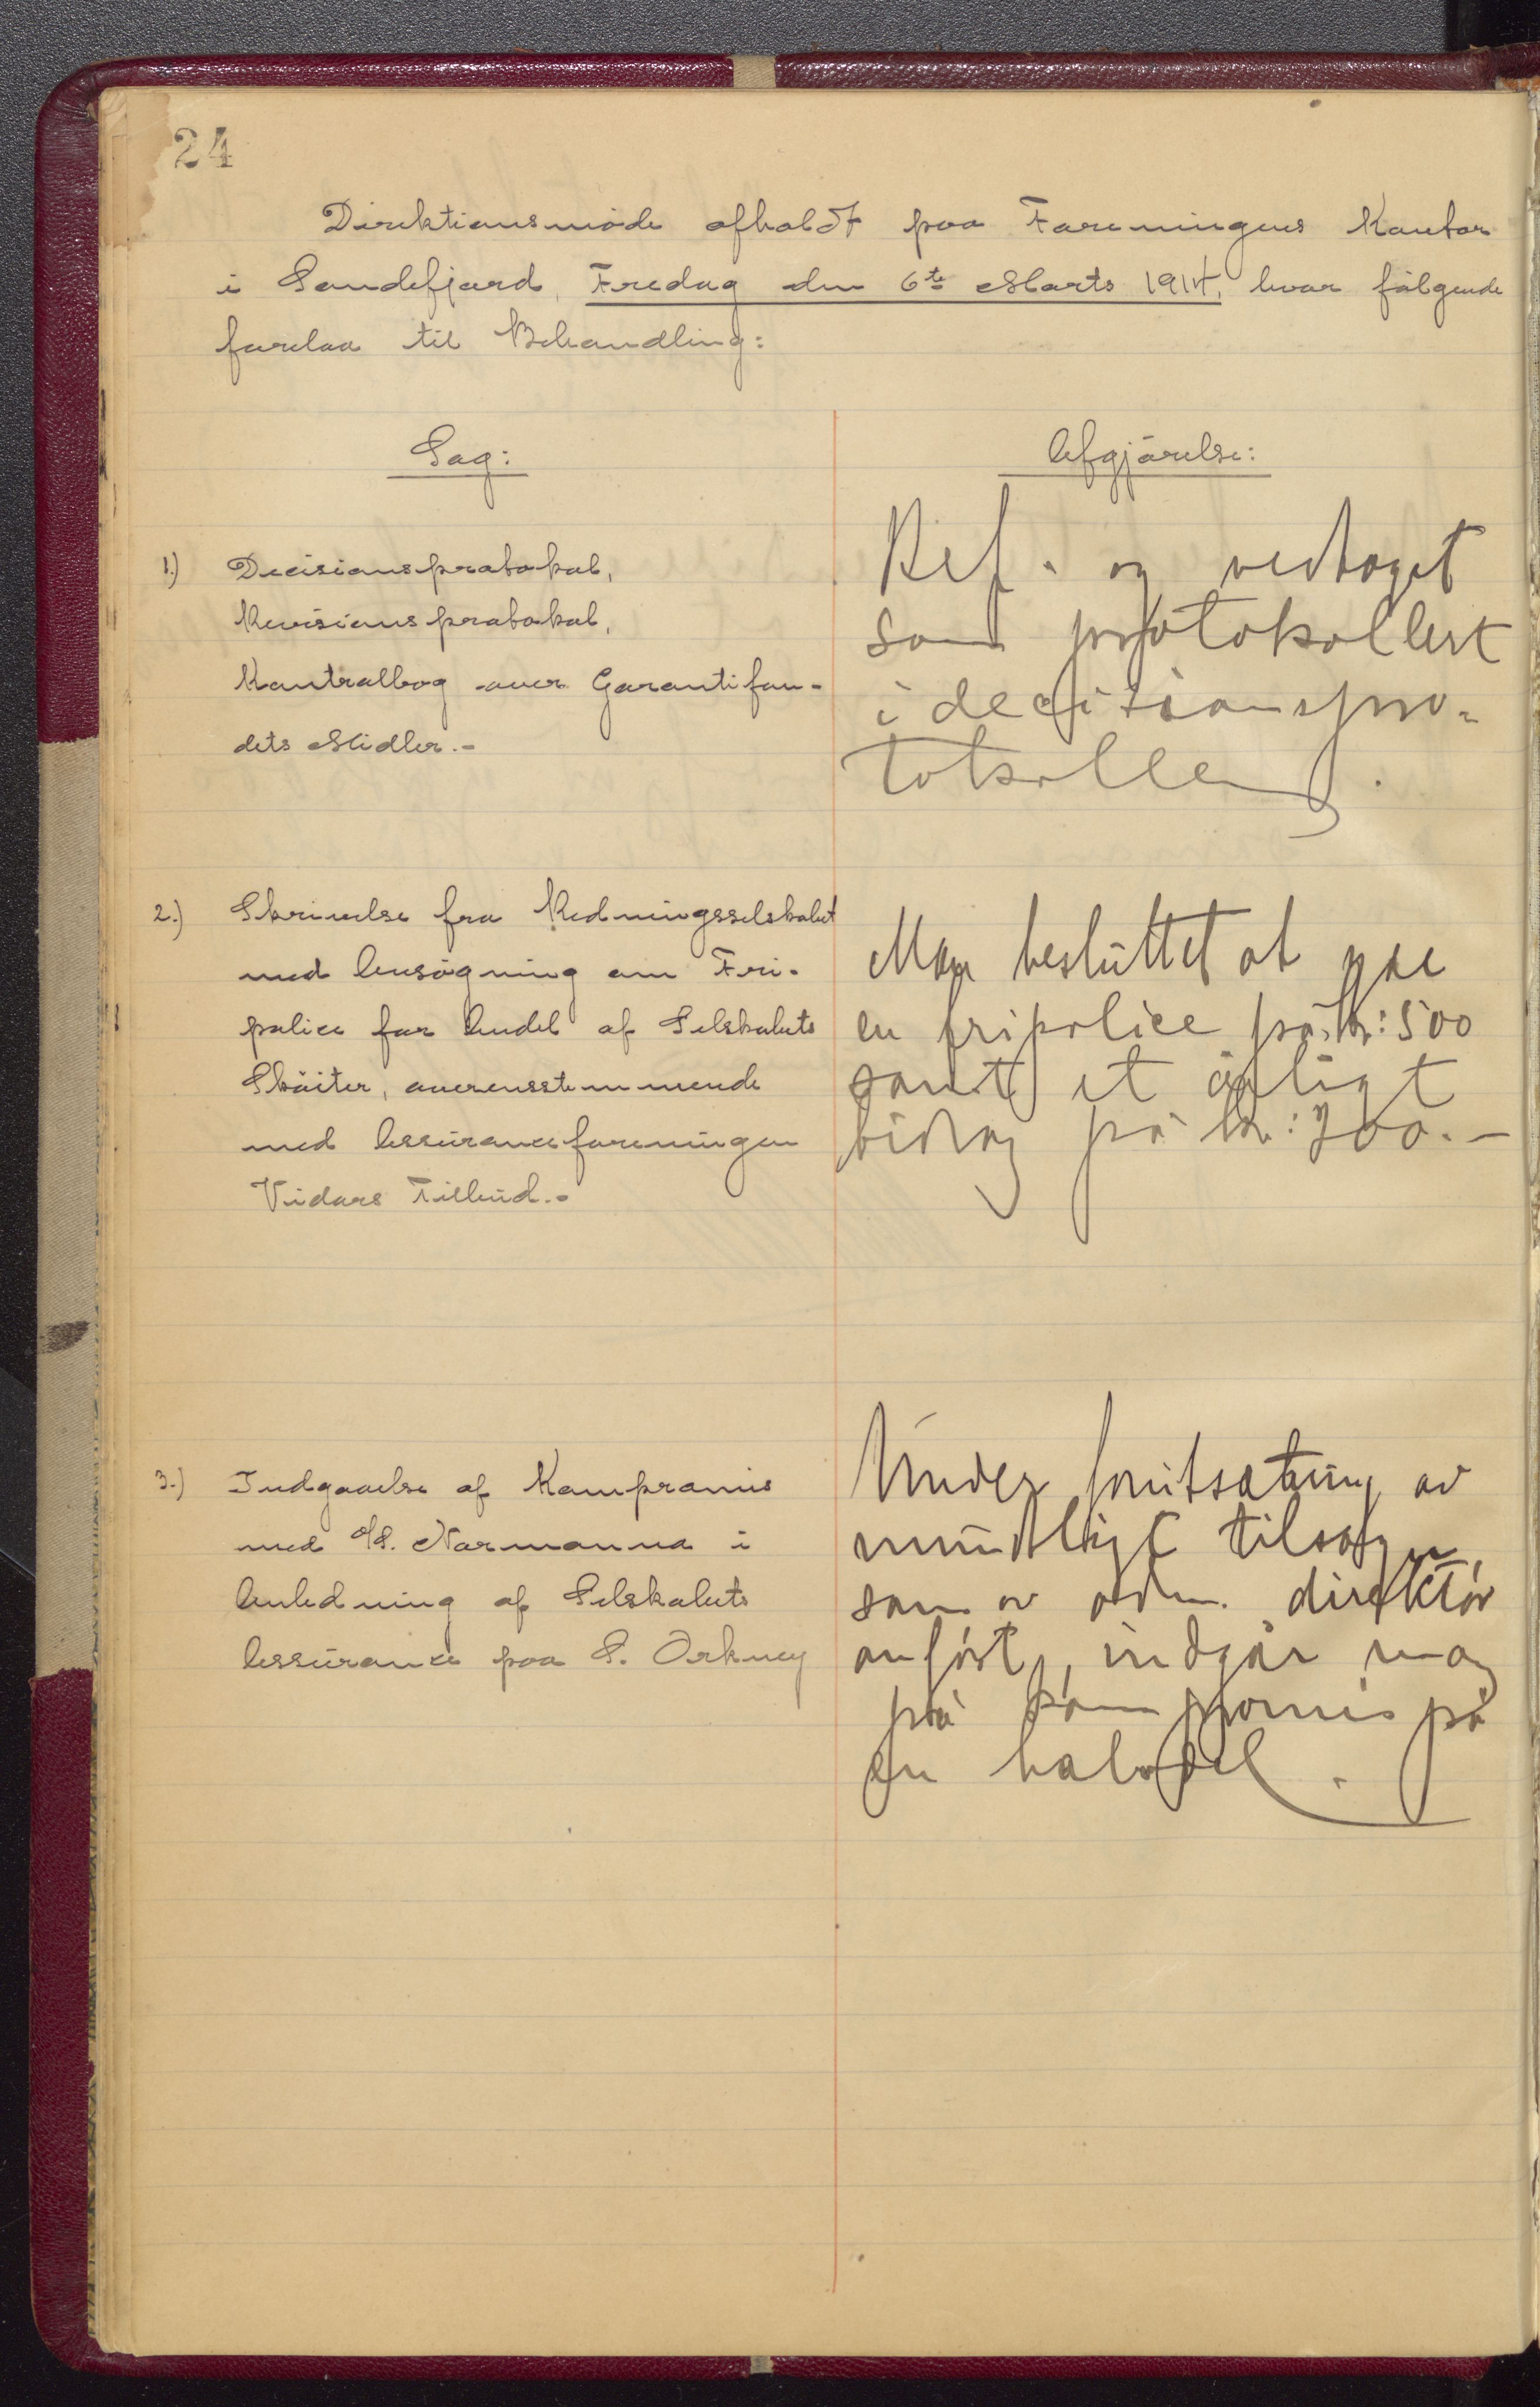 24
Direktionsmøde afholdt paa Foreningens Kontor
i Sandefjord, Fredag den 6te Marts 1914, hvor følgende
forelaa til Behandling:
Sag:
Afgjørelse:
1.) Decisionsprotokol,
Revisionsprotokol,
Kontrolbog over Garantifon-
dets Midler.-
Ref. og vedtaget
som protokollert
i decisionspro-
tokollen.
2.) Skrivelse fra Redningsselskabet
med Ansøgning om Fri-
police for Andel af Selskabets
Skøiter, overensstemmende
med Assuranceforeningen
Vidars Tilbud.-
Man besluttet at gie
en fripolice på kr: 500
samt et årligt
bidrag på kr: 700.-
3.) Indgaaelse af Kompromis
med A/S. Normanna i
Anledning af Selskabets
Assurance paa S. Orkney
Under forutsætning av
mundtligt tilsagn,
som av adm. direktør
anført, indgår man
på kompromis på
en halvdel.